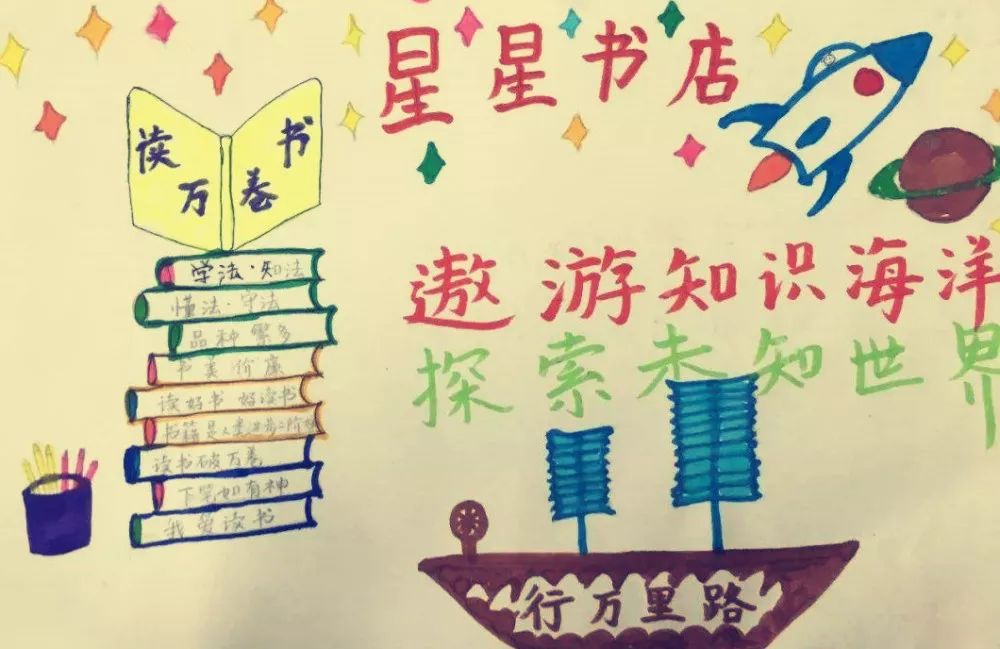 星星书店
读万卷书
学法·知法
懂法·守法
品种繁多
书美价廉
读好书 好读书
书籍是人类进步的阶梯
读书破万卷
下笔如有神
我爱读书
遨游知识海洋
探索未知世界
行万里路